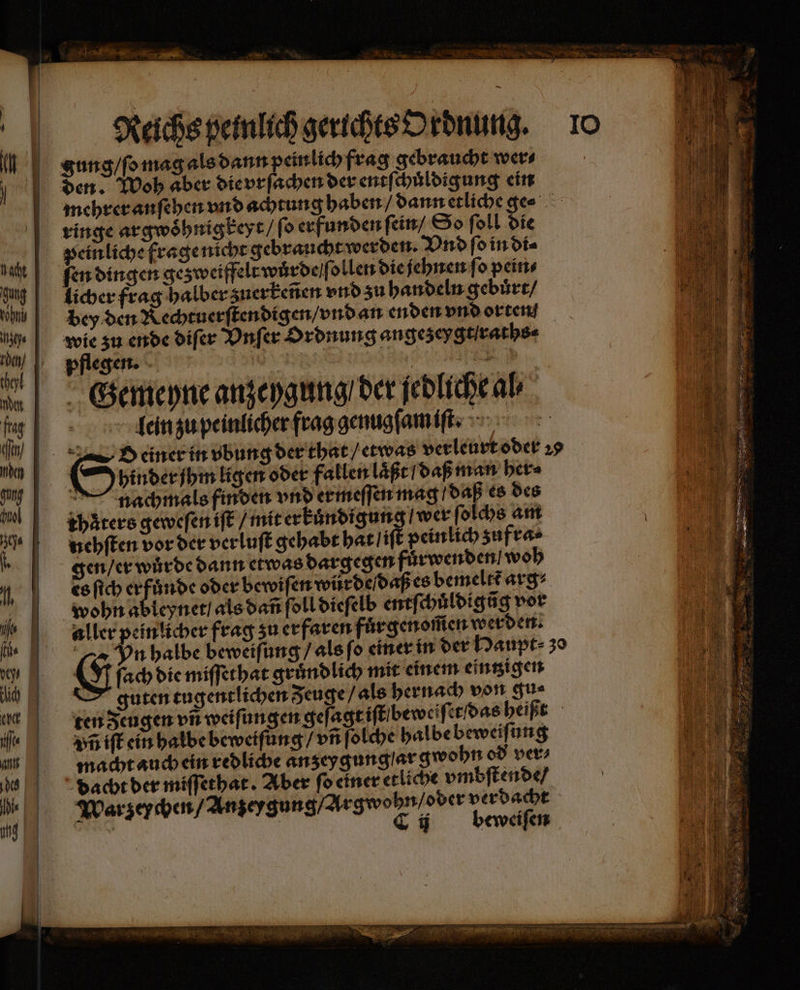 Reichs peinlich gerichts Ordnung. 10
gung/ſo mag als dann peinlich frag gebraucht wer⸗
den. Woh aber die vrſachen der entſchůldigung ein
mehrer anſehen vnd achtung haben/ dann etliche ge⸗
ringe argwoͤhnigkeyt/ ſo erfunden ſein/ So ſoll die
peinliche frage nicht gebraucht werden. Vnd ſo in di⸗
ſen dingen gezweiffelt wůrde/ſollen die jehnen ſo pein⸗
licher frag halber zuerkeñen vnd zu handeln gebůrt/
bey den Rechtuerſtendigen/vnd an enden vnd orten/
wie zu ende diſer Vnſer Ordnung angezeygt/raths⸗
pflegen.
Gemeyne anzeygung/ der jedliche al⸗
lein zu peinlicher frag genugſam iſt.
SO einer in vbung der that/ etwas verleurt oder 29
hinder jhm ligen oder fallen laͤßt/ daß man her⸗
nachmals finden vnd ermeſſen mag/ daß es des
thaͤters geweſen iſt/ mit erkůndigung/ wer ſolchs am
nehſten vor der verluſt gehabt hat/ iſt peinlich zufra⸗
gen/er wůrde dann etwas dargegen fůrwenden/ woh
es ſich erfůnde oder bewiſen würde/daß es bemeltẽ arg⸗
wohn ableynet/ als dañ ſoll dieſelb entſchůldigũg vor
aller peinlicher frag zu erfaren fůrgenom̃en werden.
EJn halbe beweiſung/ als ſo einer in der Haupt⸗ 30
ſach die miſſethat grůndlich mit einem eintzigen
guten tugentlichen Zeuge/ als hernach von gu⸗
ten Zeugen vñ weiſungen geſagt iſt/beweiſet/das heißt
vñ iſt ein halbe beweiſung/ vñ ſolche halbe beweiſung
macht auch ein redliche anzeygung/argwohn od̓ ver⸗
dacht der miſſethat. Aber ſo einer etliche vmbſtende/
Warzeychen/Anzeygung/Argwohn/oder verdacht
C ij beweiſen